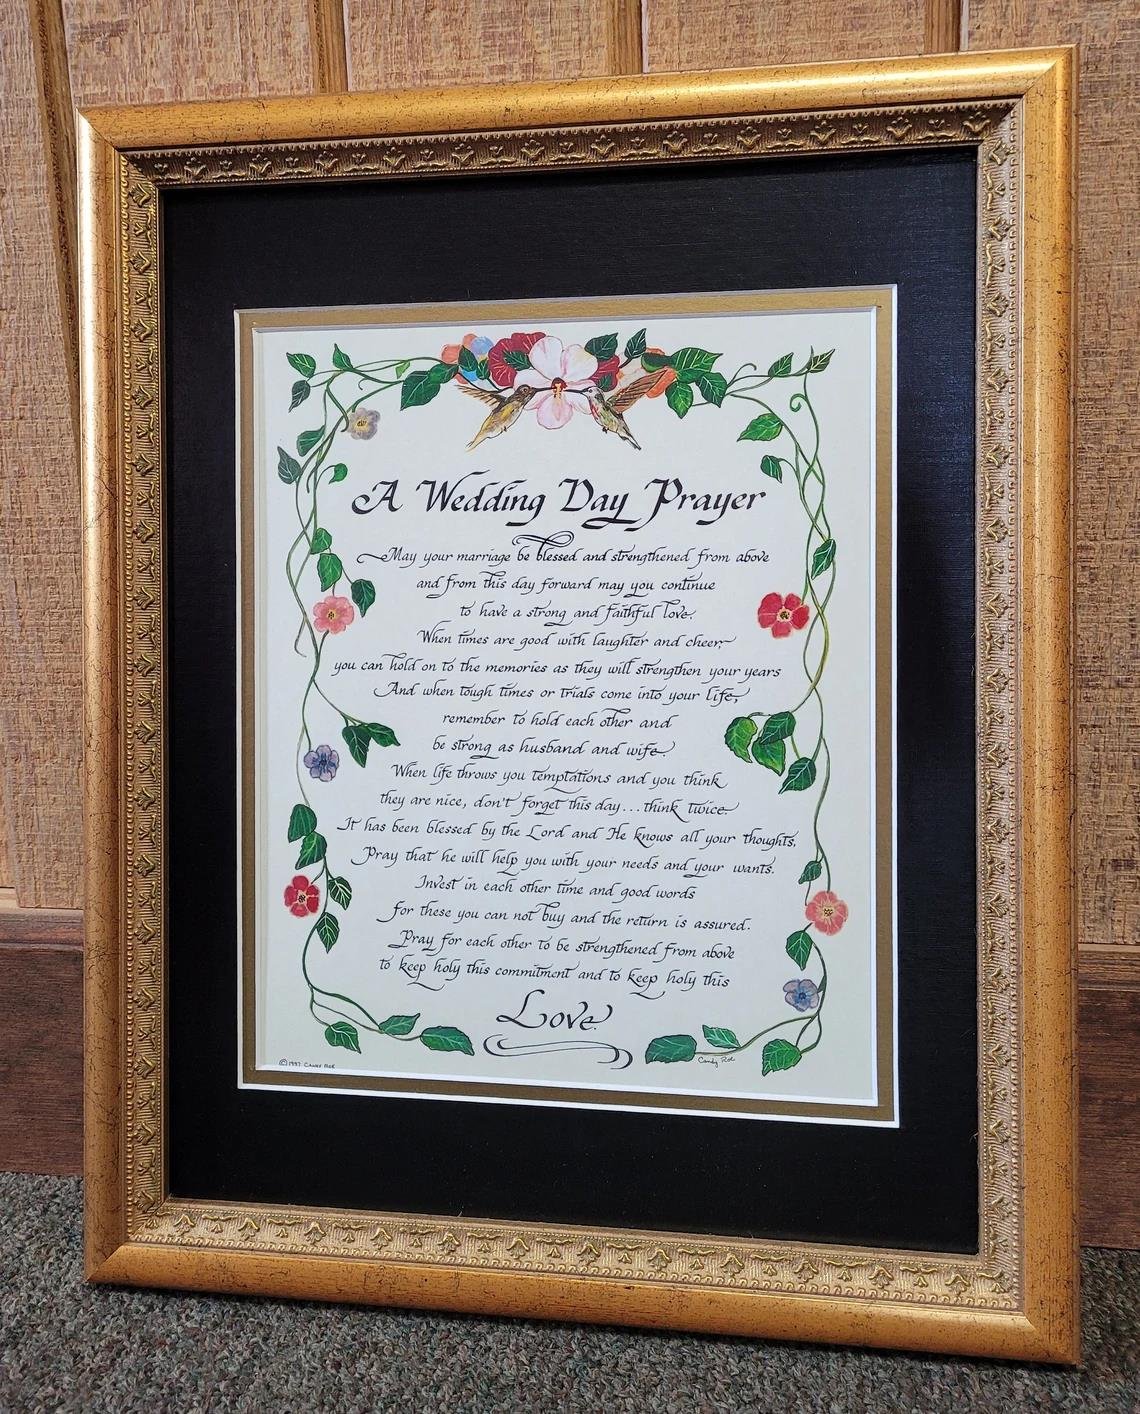 A Wedding Day Prayer
May your marriage be blessed and strengthened from above
and from this day forward may you continue
to have a strong and faithful love.
When times are good with laughter and cheer,
you can hold on to the memories as they will strengthen your years
And when tough times or trials come into your life,
remember to hold each other and
be strong as husband and wife.
When life throws you temptations and you think
they are nice, don't forget this day...think twice.
It has been blessed by the Lord and He knows all your thoughts.
Pray that he will help you with your needs and your wants.
Invest in each other time and good words
for these you can not buy and the return is assured.
Pray for each other to be strengthened from above
to keep holy this commitment and to keep holy this
Love.
©1997 CANDY ROE
Candy Roe